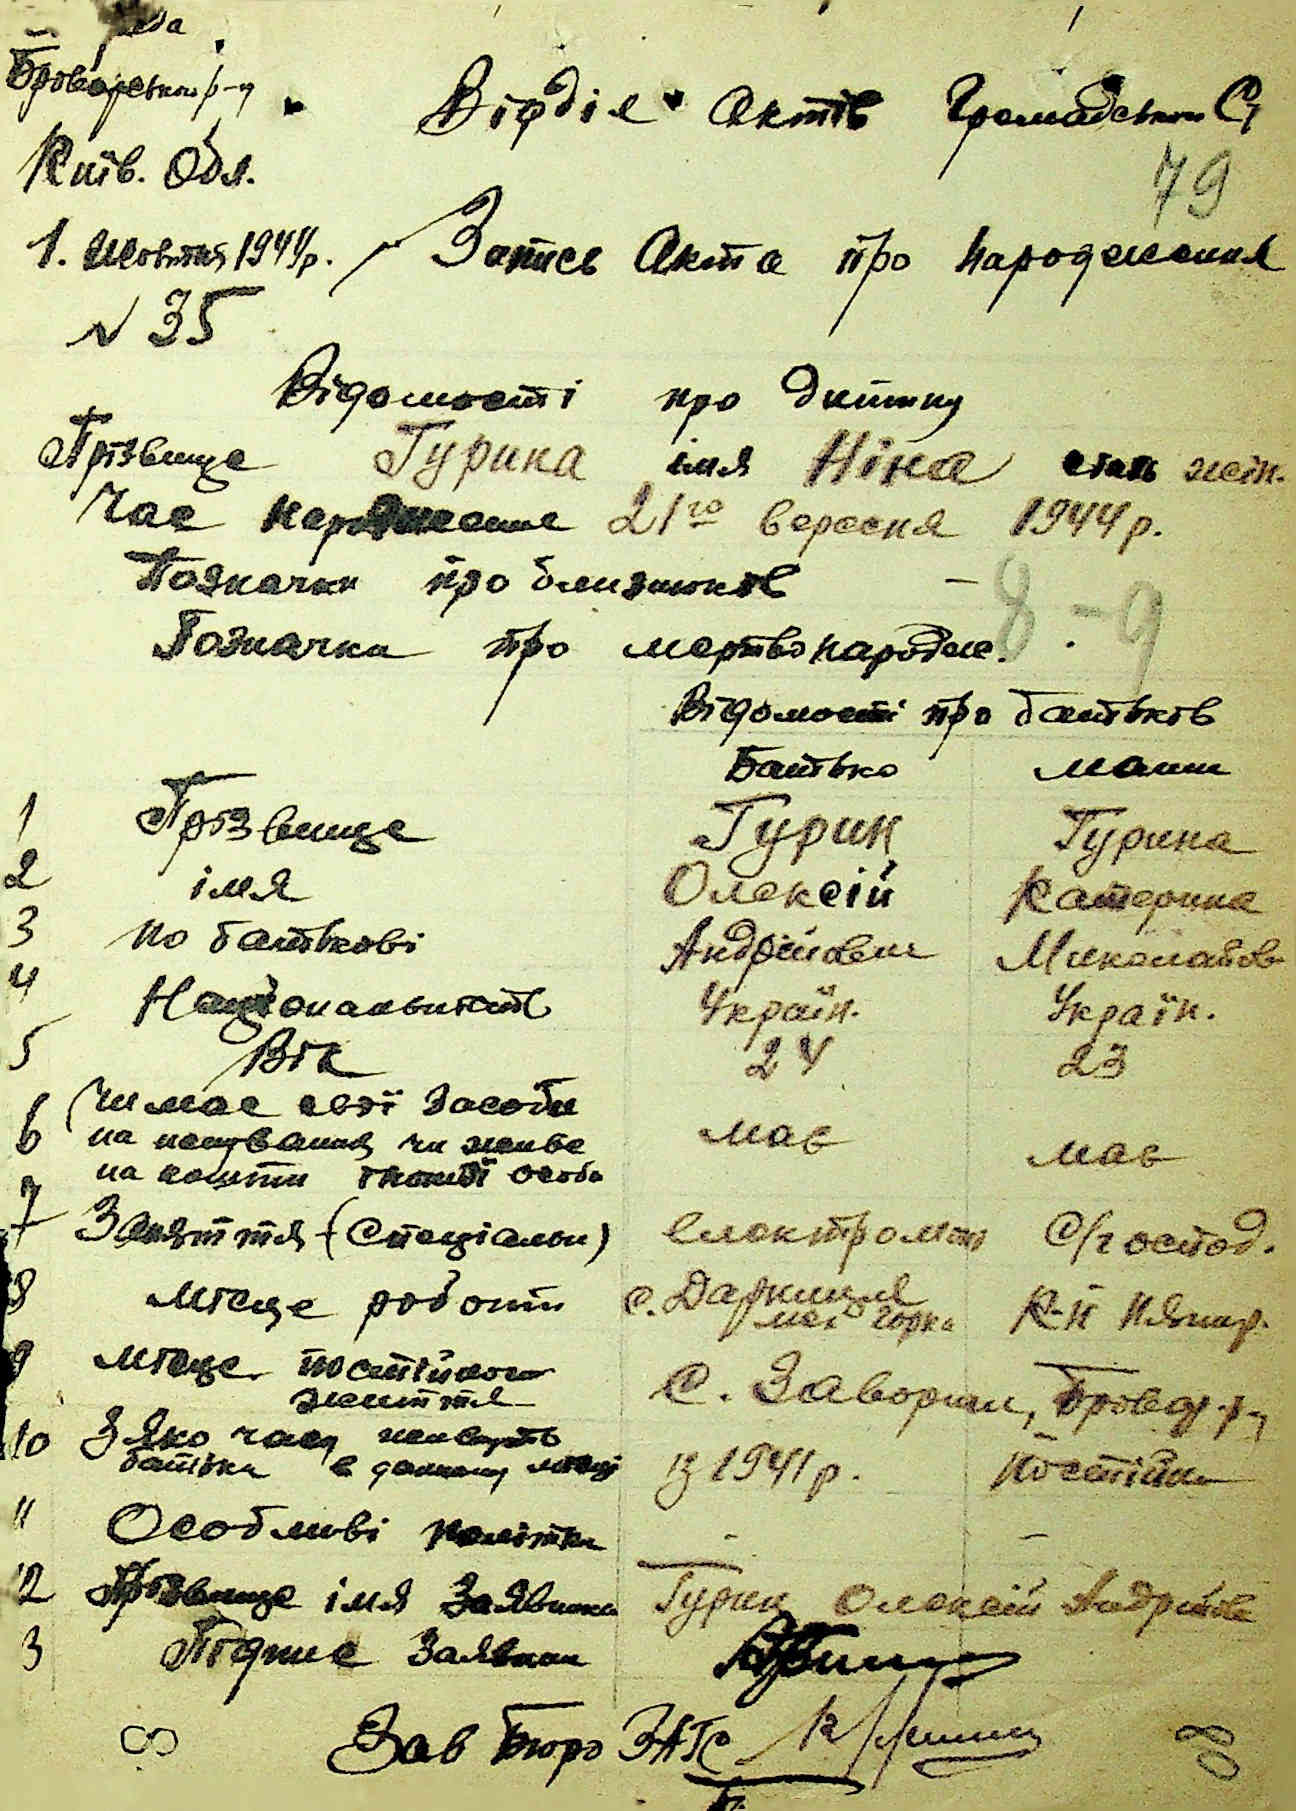 Броварськ р-н
Київ. Обл.
Відділ Актів Громадськ Ст
79
1. Жовтня 1944р.
Запись Акта про народження
№ 35
Відомості про дитину
Прізвище Гурина імя Ніна стать жін.
Час народження 21го вересня 1944р.
Позначки про близнюків -
8 - 9
Позначки про мертвонародж.
Відомості про батьків
Батько мати
1 Прізвище Гурин Гурина
2 імя Олексій Катерина
3 по батькові Андрійович Миколаівн
4 Національність Україн. Україн.
5 Вік 24 23
6 Чи має свої засоби
на існування чи живе має має
на кошти іншої особи
7 Заняття (спеціальн) електромон с/господ.
8 місце роботи с. Дарниця
9 місце постійного
життя с. Заворичі, Бровар. р-н
10 З яко часу живуть
батьки в даному місці із 1941р. постійно
11 Особливі помітки - -
12 Прізвище імя Заявника Гурин Олексій Андрійов
3 Підпис Заявник
Зав Бюро ЗАГС
80